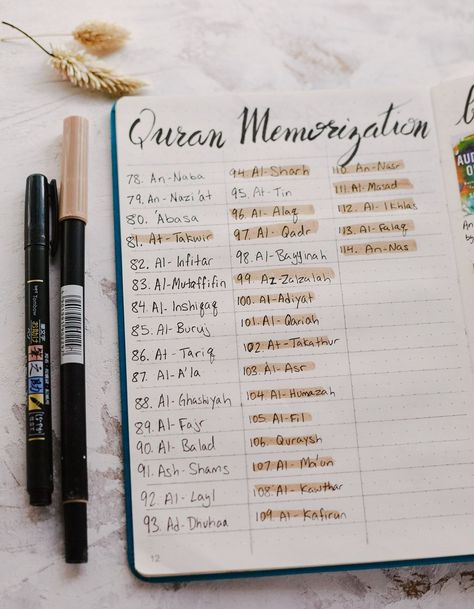 Quran Memorization
78. An-Naba
79. An-Nazi'at
80. 'Abasa
81. At-Takwir
82. Al-Infitar
83. Al-Mutaffifin
84. Al-Inshiqaq
85. Al-Buruj
86. At-Tariq
87. Al-A'la
88. Al-Ghashiyah
89. Al-Fajr
90. Al-Balad
91. Ash-Shams
92. Al-Layl
93. Ad-Dhuhaa
94. Al-Sharh
95. At-Tin
96. Al-Alaq
97. Al-Qadr
98. Al-Bayyinah
99. Az-Zalzalah
100. Al-Adiyat
101. Al-Qariah
102. At-Takathur
103. Al-Asr
104. Al-Humazah
105. Al-Fil
106. Quraysh
107. Al-Ma'un
108. Al-Kawthar
109. Al-Kafirun
110. An-Nasr
111. Al-Masad
112. Al-Ikhlas
113. Al-Falaq
114. An-Nas
12
Tombow